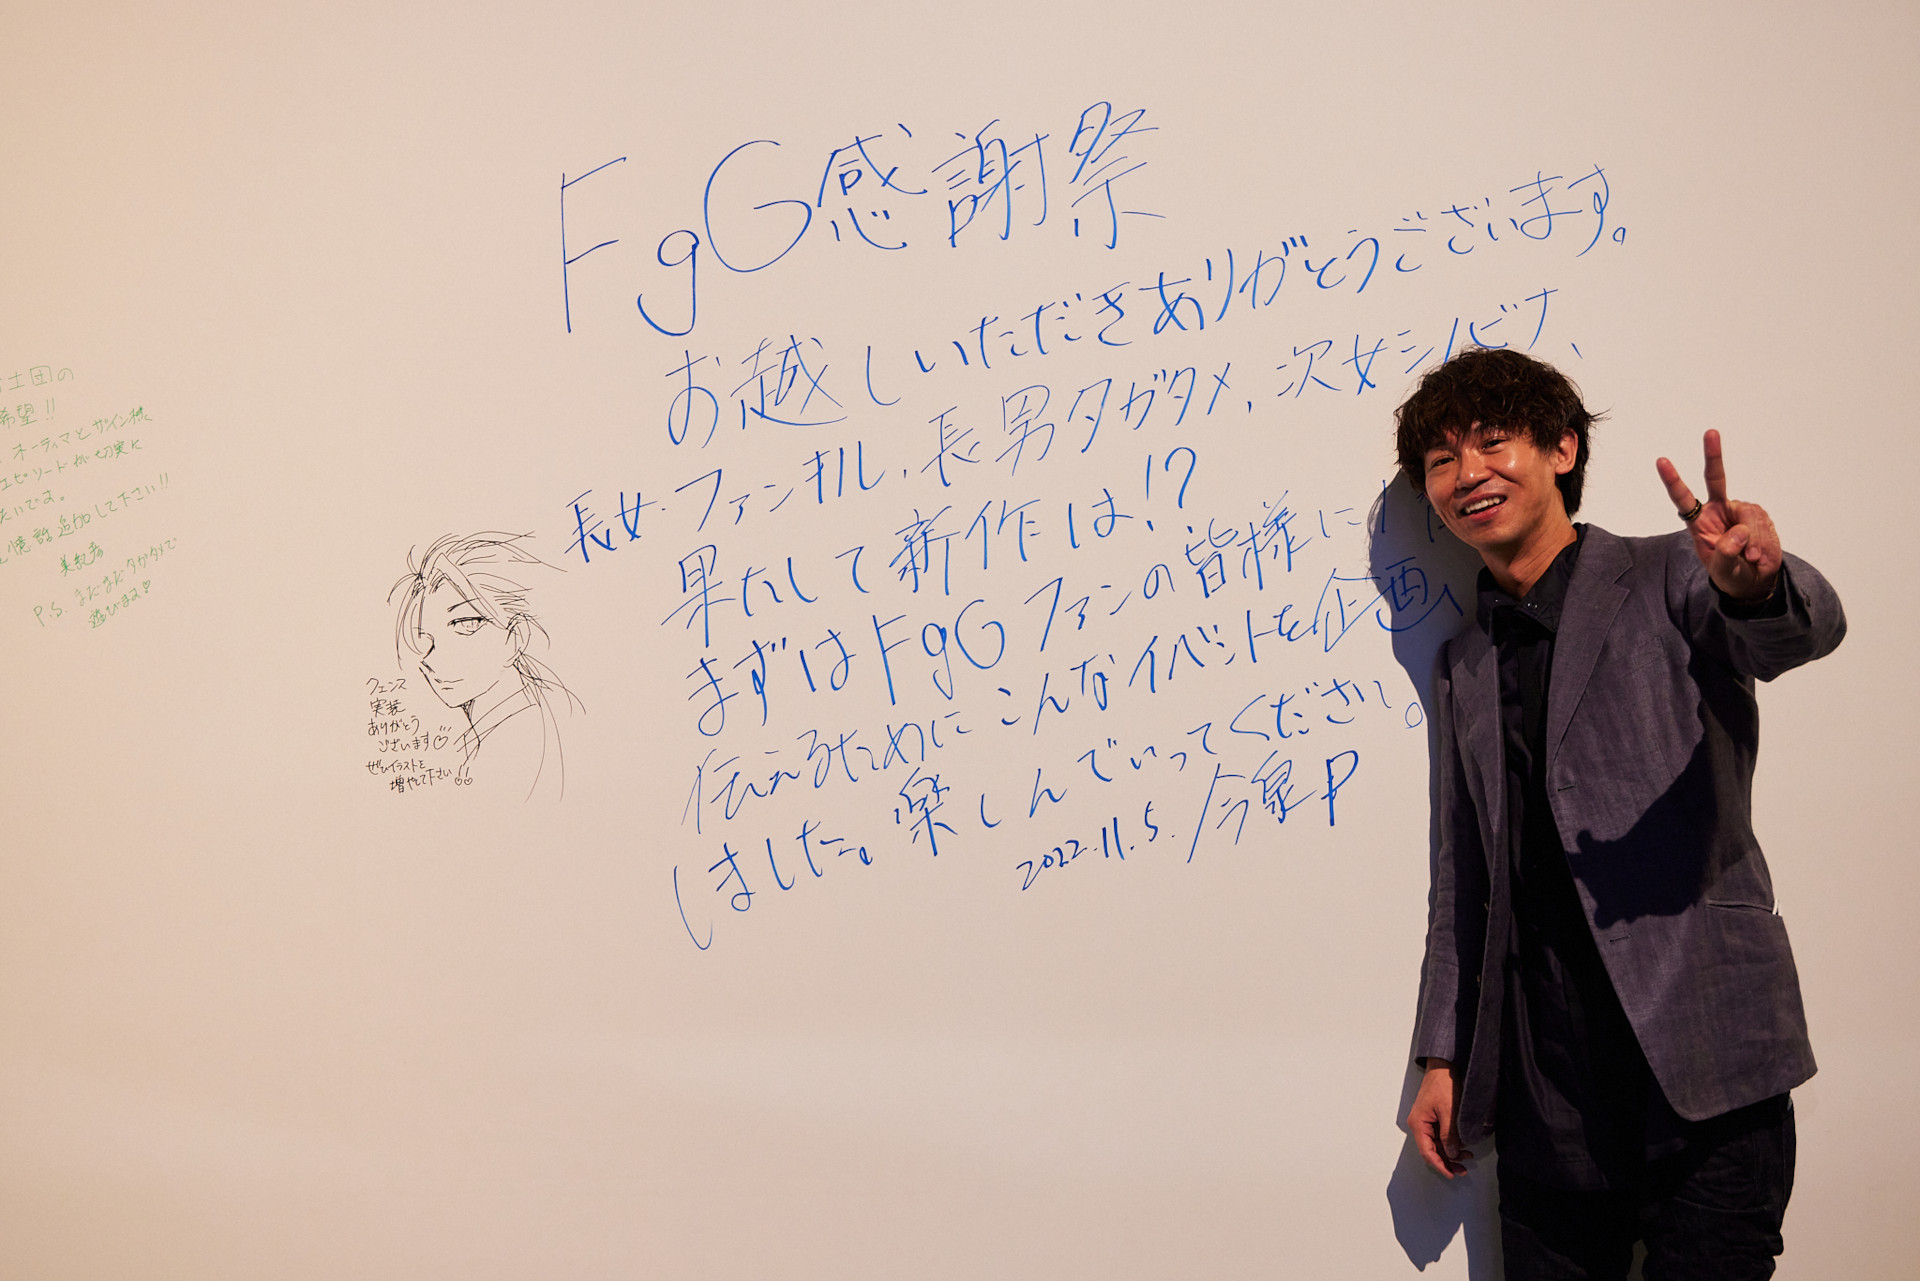 FgG感謝祭
お越しいただきありがとうございます。
長女・ファンキル、長男タガタメ、次女シノビナ、
果たして新作は!?
まずはFgGファンの皆様に
伝えるためにこんなイベントを企画
しました。楽しんでいってください。
2022.11.5. 今泉P
フェンス
実装
ありがとう
ございます♡
ぜひイラストを
増やして下さい!!
士団の
希望!!
オーティマとザイン様
エピソードが切実に
たいです。
憶話追加して下さい!!
P.S. まだまだタガタメで
遊びます♡